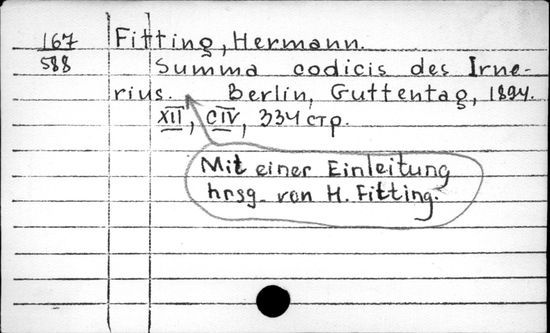 167 Fitting, Hermann.
588 Summa codicis des Irne-
rius. Berlin, Guttentag, 1894.
XII, CIV, 334 стр.
Mit einer Einleitung
hrsg. von H. Fitting.